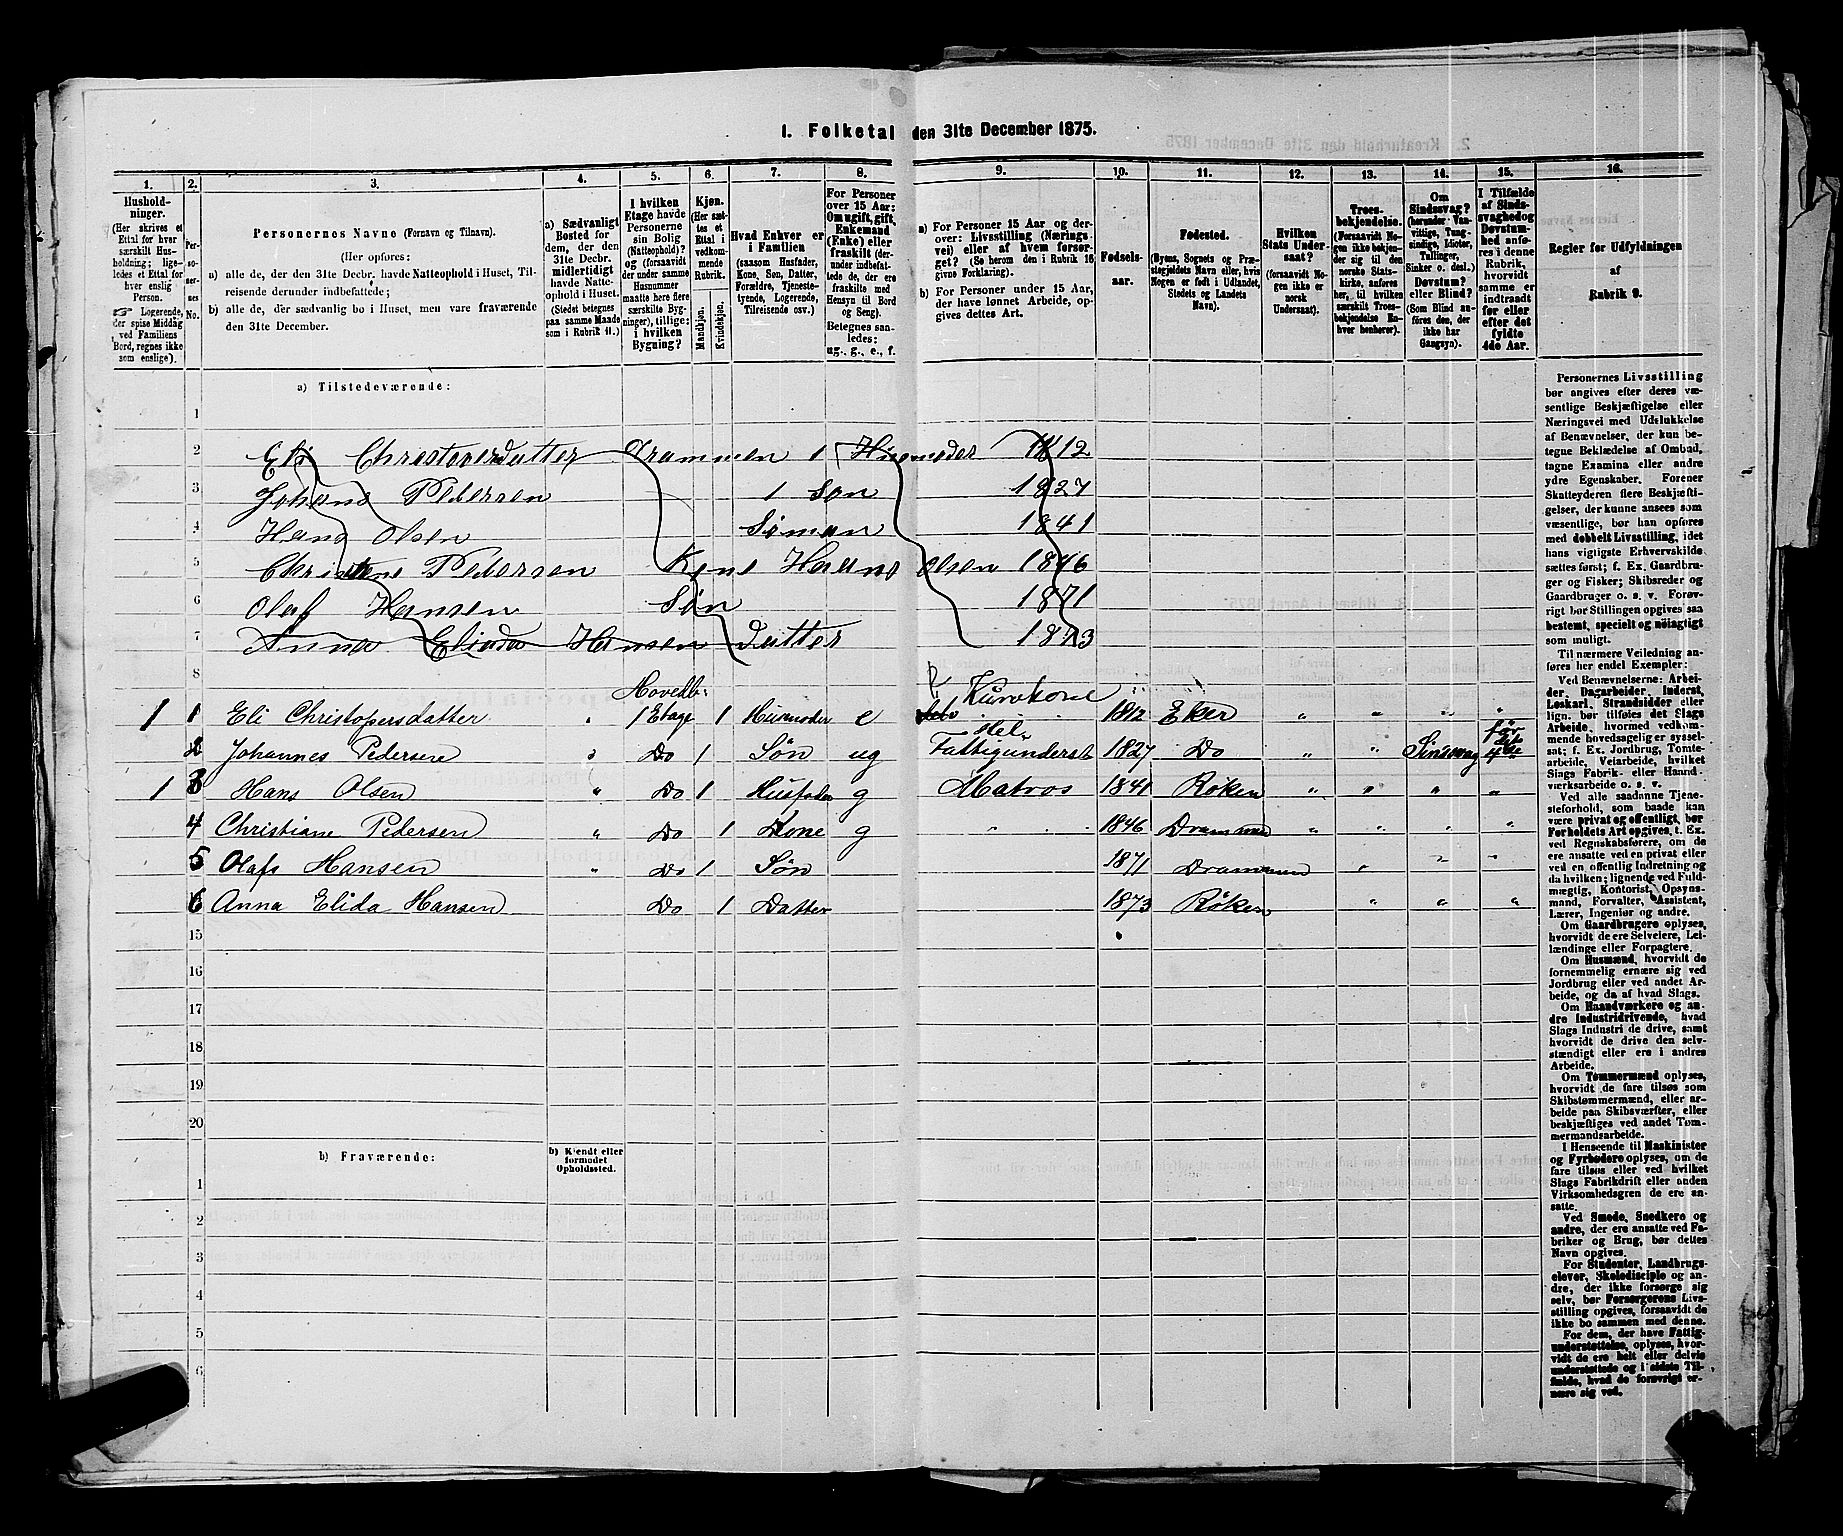 1. Folketal den 31te December 1875.
1. 2. 3. 4. 5. 6. 7. 8. 9. 10. 11. 12. 13. 14. 15. 16.
Hushold-
ninger.
(Her skrives et
Ettal for hver
særskilt Hus-
holdning; lige-
ledes et Ettal for
hver enslig
Person.
☞ Logerende,
der spise Middag
ved Familiens
Bord, regnes ikke
som enslige).
Per-
so-
ner-
nes
No.
Personernes Navne (Fornavn og Tilnavn).
(Her opføres:
a) alle de, der den 31te Decbr. havde Natteophold i Huset, Til-
reisende derunder indbefattede;
b) alle de, der sædvanlig bo i Huset, men vare fraværende
den 31te December.
a) Sædvanligt
Bosted for
dem, der den
31te Decbr.
midlertidigt
havde Natte-
ophold i Huset.
(Stedet betegnes
paa samme Maade
som i Rubrik 11.)
I hvilken
Etage havde
Personerne
sin Bolig
(Natteophold)?
og (forsaavidt
der under samme
Husnummer
maatte høre flere
særskilte Byg-
ninger), tillige:
i hvilken
Bygning?
Kjøn.
(Her sæt-
tes et
Ettal i
vedkom-
mende
Rubrik.
Mandkjøn.
Kvindekjøn.
Hvad Enhver er
i Familien
(saasom Husfader,
Kone, Søn, Datter,
Forældre, Tjeneste-
tyende, Logerende,
Tilreisende osv.)
For Personer
over 15 Aar:
Om ugift, gift,
Enkemand
(Enke) eller
fraskilt (der-
under indbefat-
tede de, der ere
fraskilte med
Hensyn til Bord
og Seng).
Betegnes saa-
ledes:
ug., g., e., f.
a) For Personer 15 Aar og der-
over: Livsstilling (Nærings-
vei) eller af hvem forsør-
get? (Se herom den i Rubrik 16
givne Forklaring).
b) For Personer under 15 Aar,
der have lønnet Arbeide, op-
gives dettes Art.
Fødsels-
aar.
Fødested.
(Byens, Sognets og Præ-
stegjeldets Navn eller, hvis
Nogen er født i Udlandet,
Stedets og Landets
Navn).
Hvilken
Stats Under-
saat?
(forsaavidt No-
gen ikke er
norsk
Undersaat).
Troes-
bekjendelse.
(Forsaavidt No-
gen ikke bekjen-
der sig til den
norske Stats-
kirke, anføres
her, til hvilken
særskilt Troes-
bekjendelse En-
hver henhører).
Om
Sindssvag?
(herunder Van-
vittige, Tung-
sindige, Idioter,
Tullinger,
Sinker o. desl.)
Døvstum?
eller Blind?
(Som Blind an-
føres den, der
ikke har
Gangsyn).
I Tilfælde
af Sinds-
svaghed og
Døvstum-
hed anfø-
res i denne
Rubrik,
hvorvidt
samme er
indtraadt
før eller
efter det
fyldte
4de Aar.
Regler for Udfyldningen
af
Rubrik 9.
a) Tilstedeværende:
1
2 Eli Christoversdatter Drammen 1 Husmoder 1812
3 Johans Pedersen 1 Søn 1827
4 Hans Olsen Søman 1841
5 Christiane Pedersen Kone Hans Olsen 1846
6 Olaf Hansen Søn 1871
7 Anna Elinda Hansen Datter 1873
8
1 1 Eli Christopersdatter " Hovedb: 1 Etage 1 Husmoder e Kurvkone 1812 Eker " " " "
2 Johannes Pedersen " Do 1 Søn ug Hel Fattigunderst 1827 Do " " Sindssvag før det 4de
1 3 Hans Olsen " Do 1 Husfader g Matros 1841 Røken " " " "
4 Christiane Pedersen " Do 1 Kone g " 1846 Drammen " " " "
5 Olaf Hansen " Do 1 Søn 1871 Drammen " " "
6 Anna Elida Hansen Do 1 Datter 1873 Røken " " "
15
16
17
18
19
20
b) Fraværende:
b) Kjendt eller
formodet
Opholdssted.
1
2
3
4
5
6
Personernes Livsstilling
bør angives efter deres væ-
sentlige Beskjæftigelse eller
Næringsvei med Udelukkelse
af Benævnelser, der kun be-
tegne Beklædelse af Ombud,
tagne Examina eller andre
ydre Egenskaber. Forener
Skatteyderen flere Beskjæfti-
gelser, der kunne ansees som
væsentlige, bør han opføres
med dobbelt Livsstilling, idet
hans vigtigste Erhvervskilde
sættes først; f. Ex. Gaardbru-
ger og Fisker; Skibsreder og
Gaardbruger o. s. v. Forøv-
rigt bør Stillingen opgives saa
bestemt, specielt og nöiagtigt
som muligt.
Til nærmere Veiledning an-
føres her endel Exempler:
Ved Benævnelserne: Arbei-
der, Dagarbeider, Inderst,
Løskarl, Strandsidder eller
lign. bør tilføies det Slags
Arbeide, hvormed vedkom-
mende hovedsagelig er syssel-
sat; f. Ex. Jordbrug, Tomte-
arbeide, Veiarbeide, hvilket
Slags Fabrik- eller Haand-
værksarbeide o. s. v.
Ved alle saadanne Tjene-
steforhold, som baade kan
være privat og offentligt, bør
Forholdets Art opgives, t. Ex.
ved Regnskabsførere, om de
ere ansatte ved en privat eller
ved en offentlig Indretning og
da hvilken; lignende ved Fuld-
mægtig, Kontorist, Opsyns-
mand, Forvalter, Assistent,
Lærer, Ingeniør og andre.
Om Gaardbrugere oplyses,
hvorvidt de ere Selveiere, Lei-
lændinge eller Forpagtere.
Om Husmænd, hvorvidt de
fornemmelig ernære sig ved
Jordbrug eller ved andet Ar-
beide, og da af hvad Slags.
Om Haandværkere og an-
dre Industridrivende, hvad
Slags Industri de drive, samt
hvorvidt de drive den selv-
stændigt eller ere i andres
Arbeide.
Om Tømmermænd oplyses,
hvorvidt de fare tilsøs som
Skibstømmermænd, eller ar-
beide paa Skibsværfter, eller
beskjæftiges ved andet Tøm-
mermandsarbeide.
I Henseende til Maskinister
og Fyrbødere oplyses, om de
fare tilsøs eller ved hvilket
Slags Fabrikdrift eller anden
Virksomhedsgren de ere an-
satte.
Ved Smede, Snedkere og
andre, der ere ansatte ved Fa-
briker og Brug, bør dettes
Navn opgives.
For Studenter, Landbrugs-
elever, Skoledisciple og an-
dre, der ikke forsørge sig
selv, bør Forsørgerens Livs-
stilling opgives, forsaavidt de
ikke bo sammen med denne.
For dem, der have Fattig-
understøttelse, oplyses, hvor-
vidt de ere helt eller delvis
understøttede og i sidste Til-
fælde, hvad de forøvrigt er-
nære sig ved.